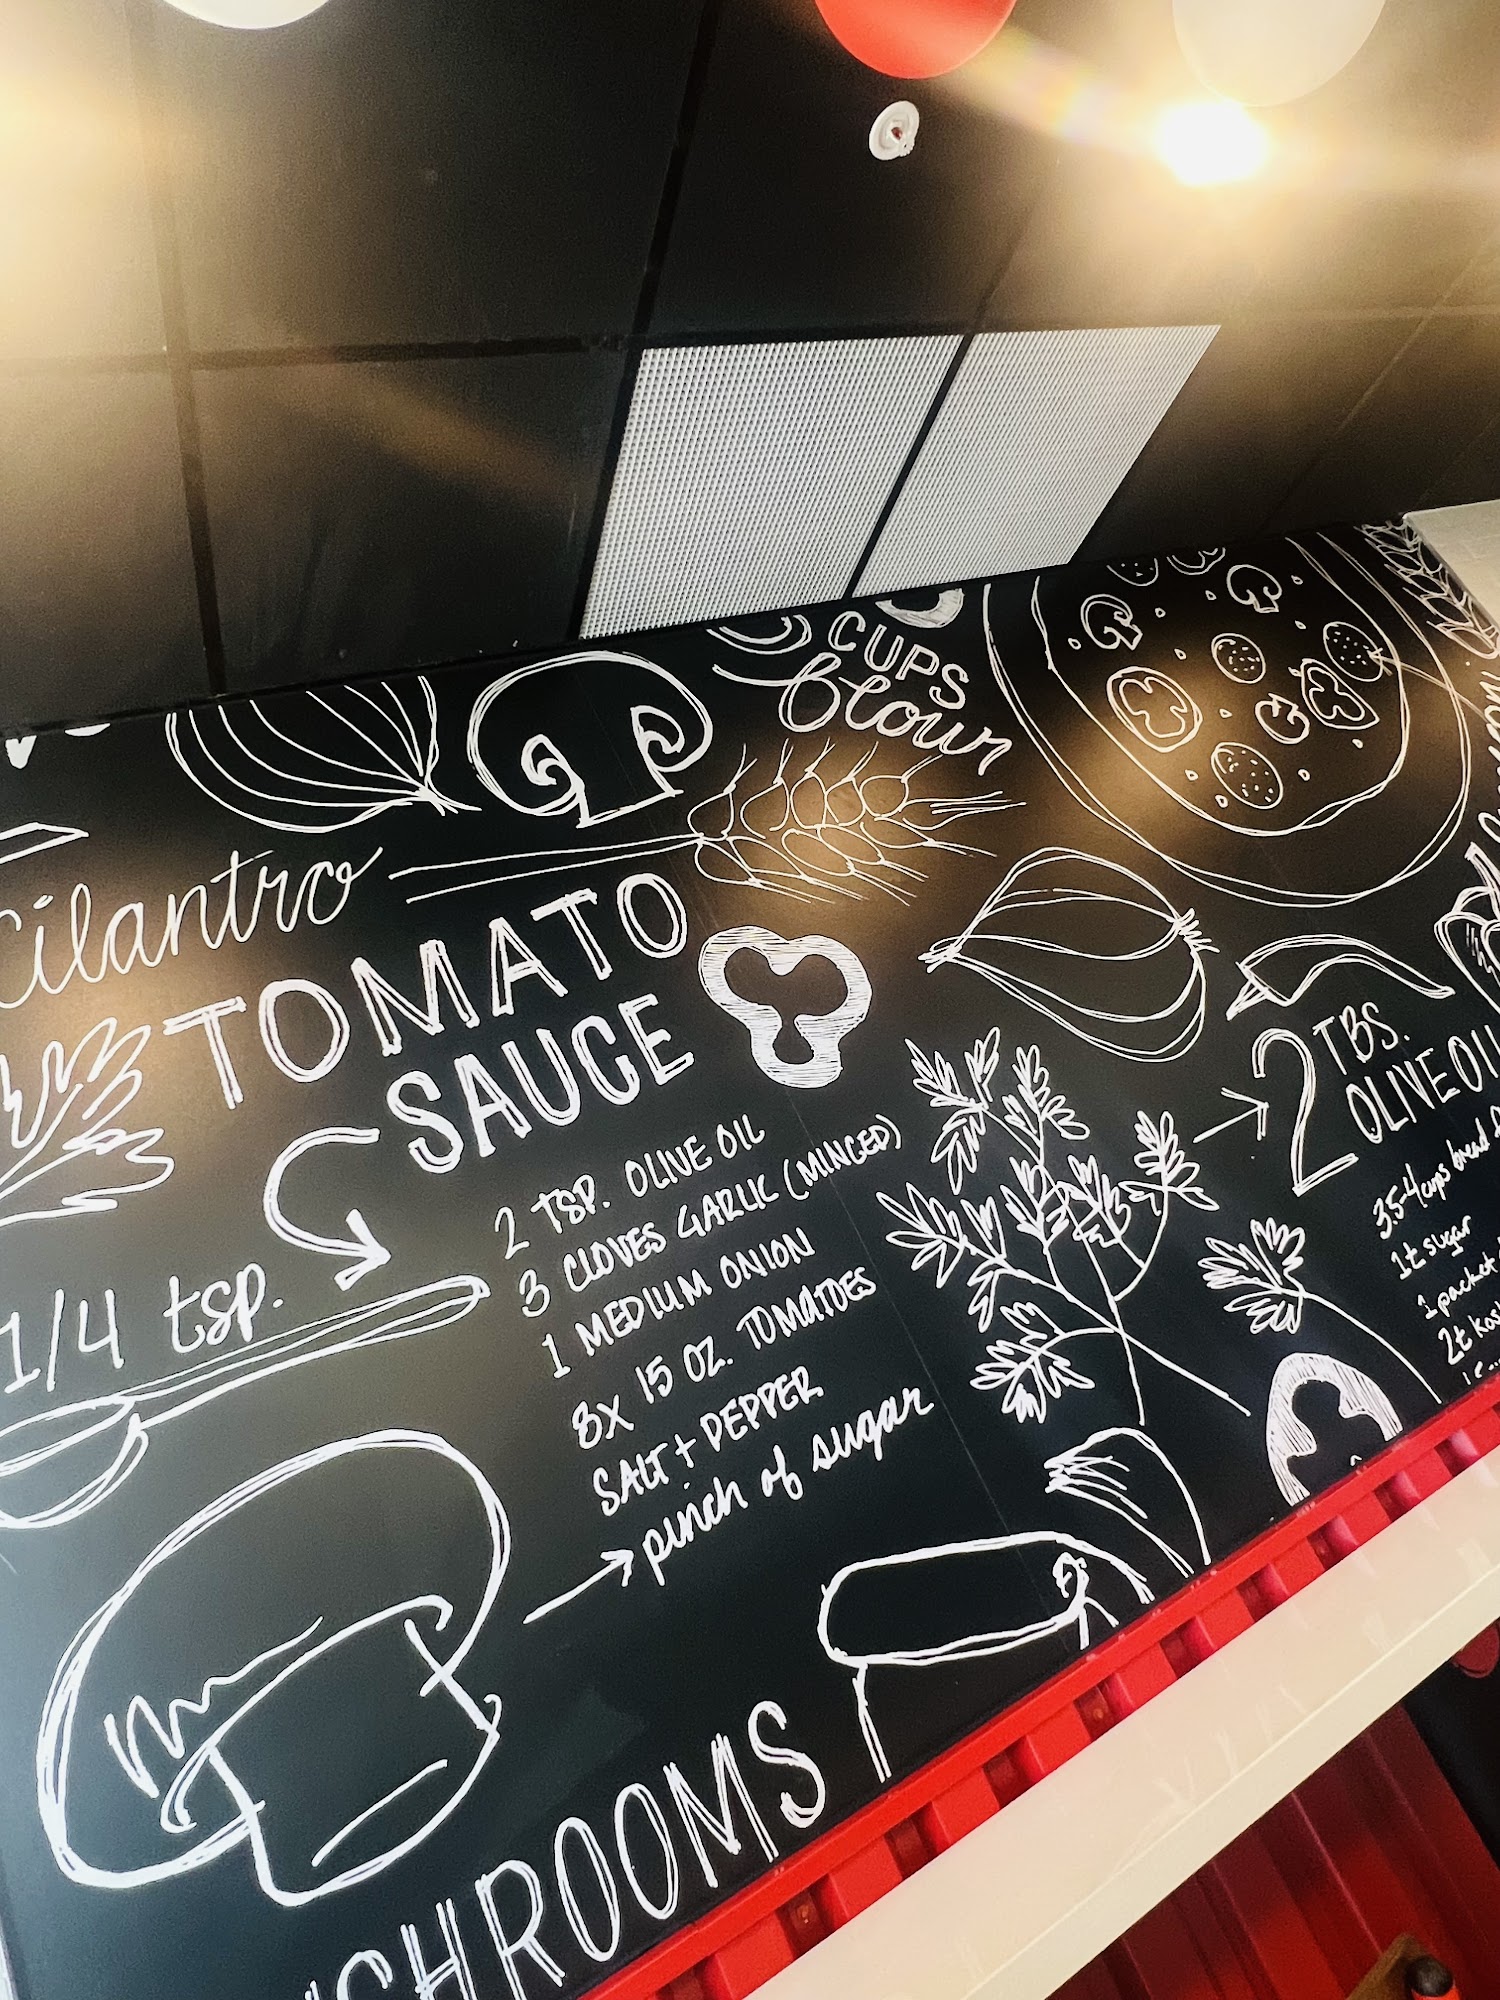 CUPS
flour
cilantro
TOMATO
SAUCE
2 TSP. OLIVE OIL
3 CLOVES GARLIC (MINCED)
1 MEDIUM ONION
8X 15 OZ. TOMATOES
SALT + PEPPER
pinch of sugar
1/4 tsp.
2 TBS.
OLIVE OIL
3.5-4 cups bread
1t sugar
1 packet
2t